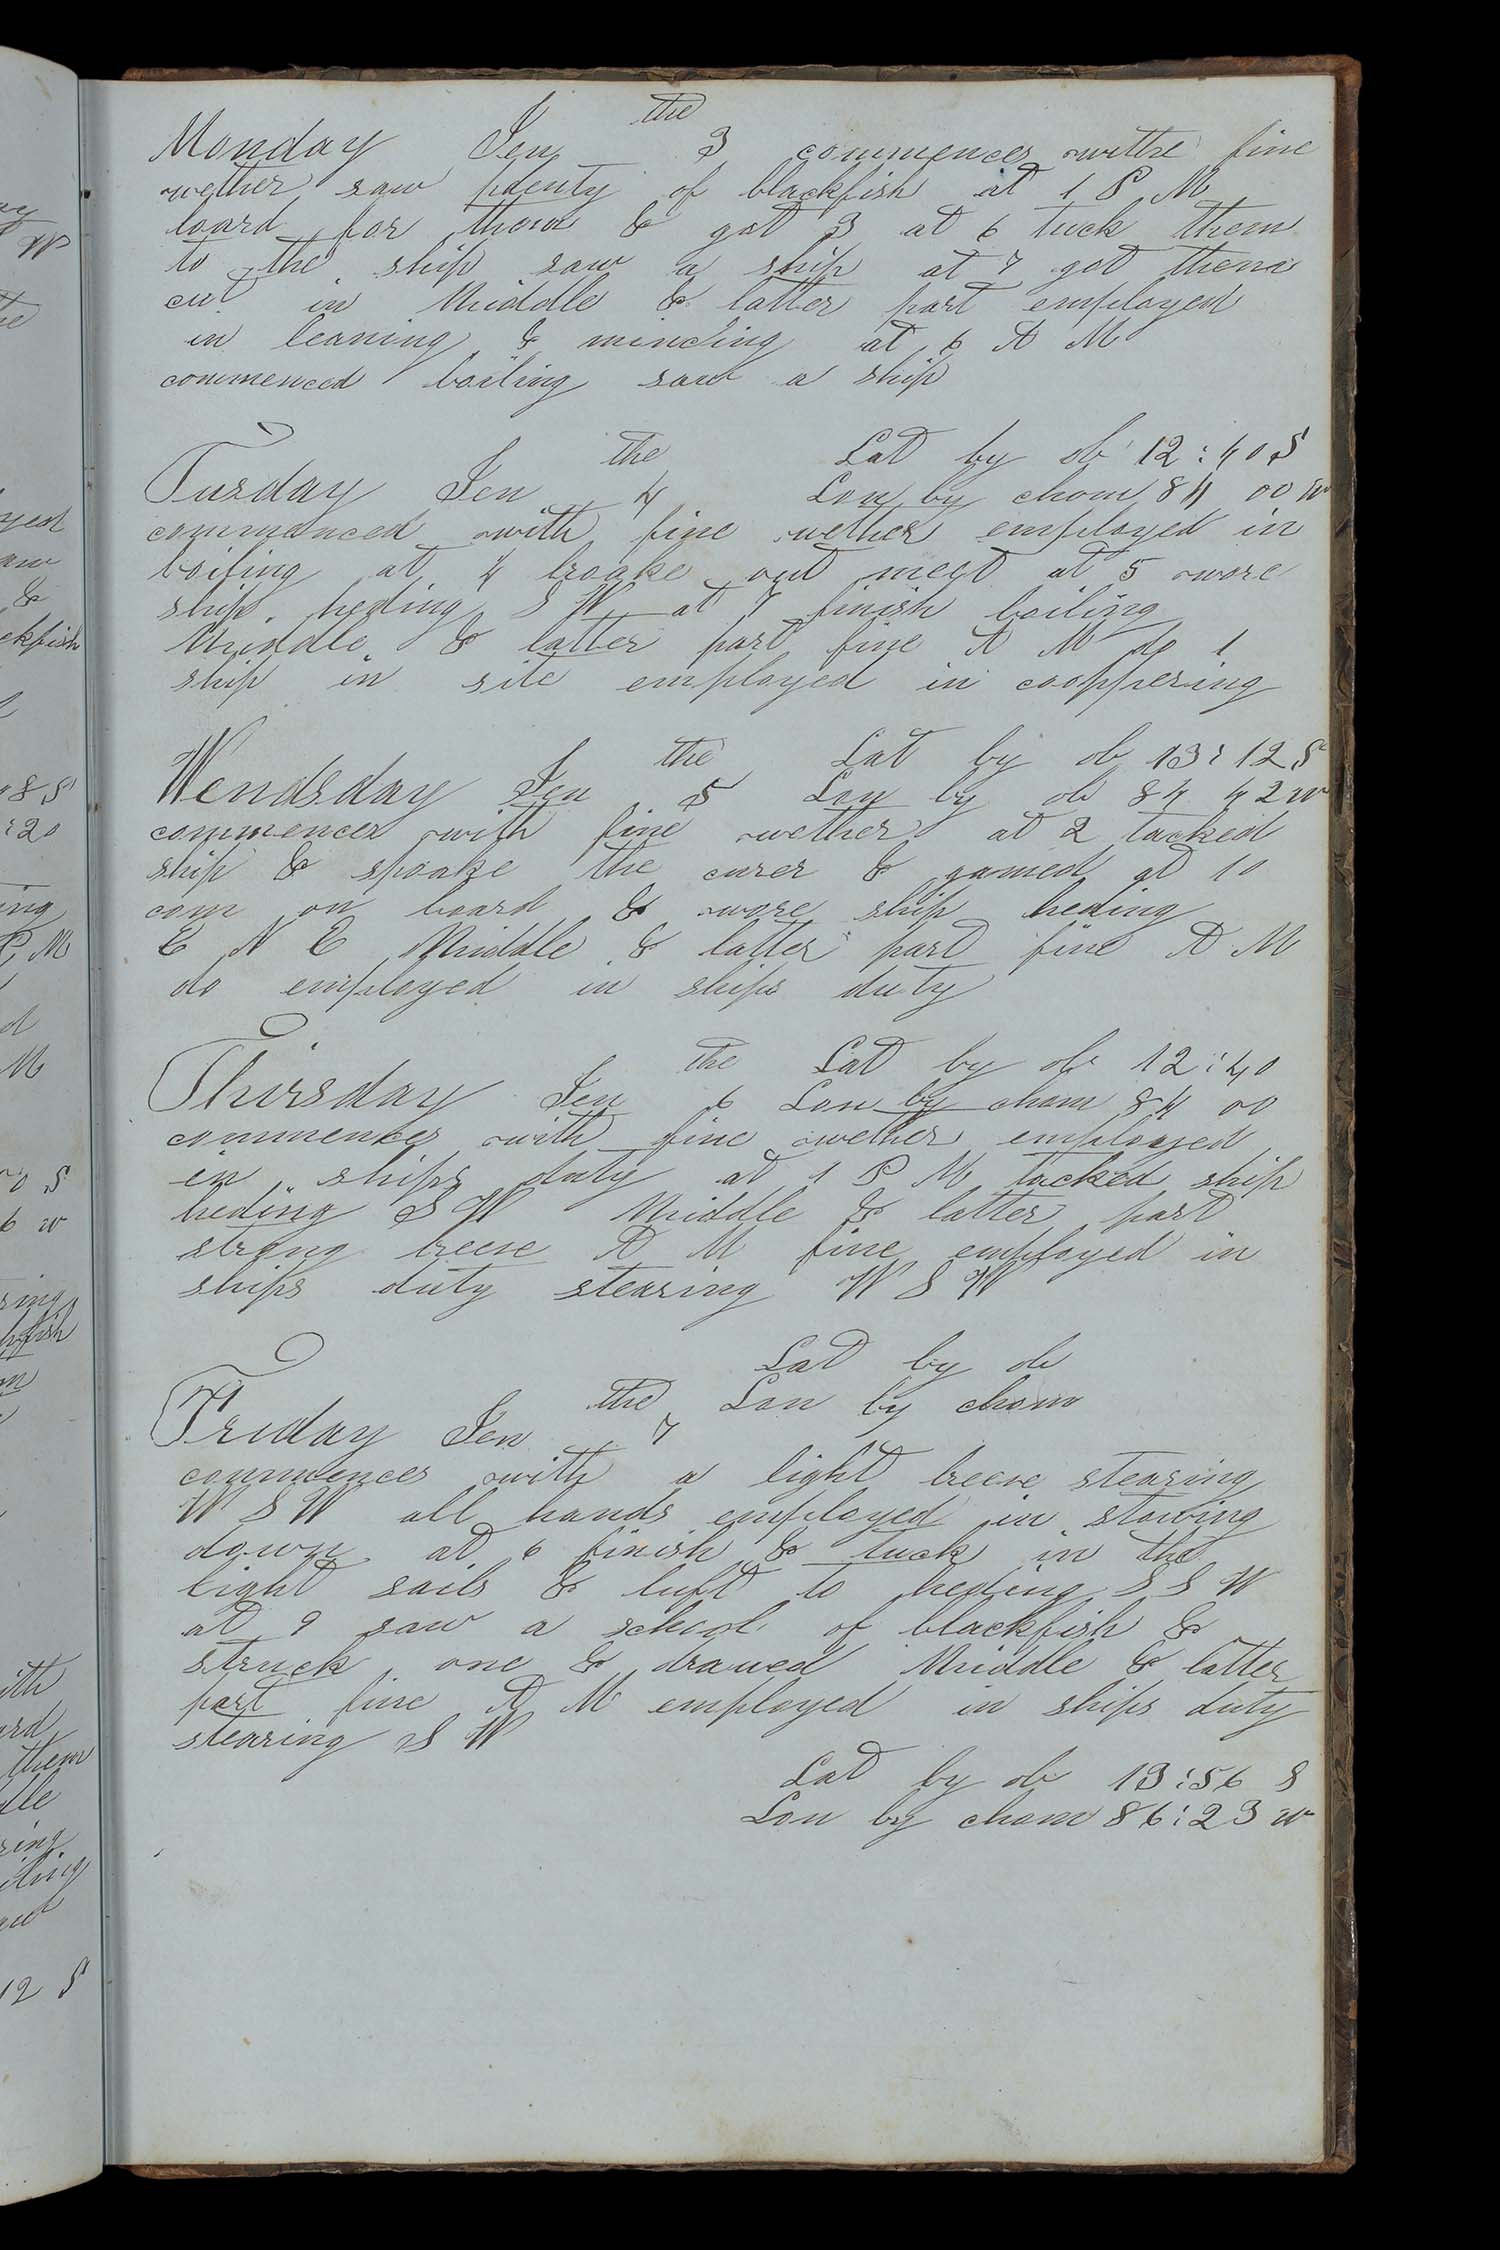 Monday Jen the 3 commences withe fine
wether saw plenty of blackfish at 1 P M
loard for them & got 3 at 6 tuck them
to the ship saw a ship at 7 got them
cut in Middle & latter part employed
in leaning & mincing at 6 A M
commenced boiling saw a ship
Lat by ob 12:40 S
Tusday Jen the 4 Lon by chom 84 00 w
commanced with fine wether employed in
boiling at 4 broake out meet at 5 wore
ship heding S W at 7 finish boiling
Middle & latter part fine A M do 1
ship in site employed in cooppering
Lat by ob 13:12 S
Wendsday Jen the 5 Lon by ob 84 42 w
commences with fine wether at 2 tacked
ship & spoake the & gamed at 10
com on board & wore ship heding
E N E Middle & latter part fine A M
do employed in ships duty
Lat by ob 12:40
Thirsday Jen the 6 Lon by chom 84 00
commences with fine wether employed
in ships duty at 1 P M tacked ship
heding S W Middle & latter part
strong breese A M fine employed in
ships duty stearing W S W
Lat by ob
Friday Jen the 7 Lon by chom
commences with a light breese stearing
W S W all hands employed in stowing
down at 6 finish & tuck in the
light sails & luft to heding S S W
at 9 saw a school of blackfish &
struck one & drawed Middle & latter
part fine A M employed in ships duty
stearing S W
Lat by ob 13:56 S
Lon by chom 86:23 w